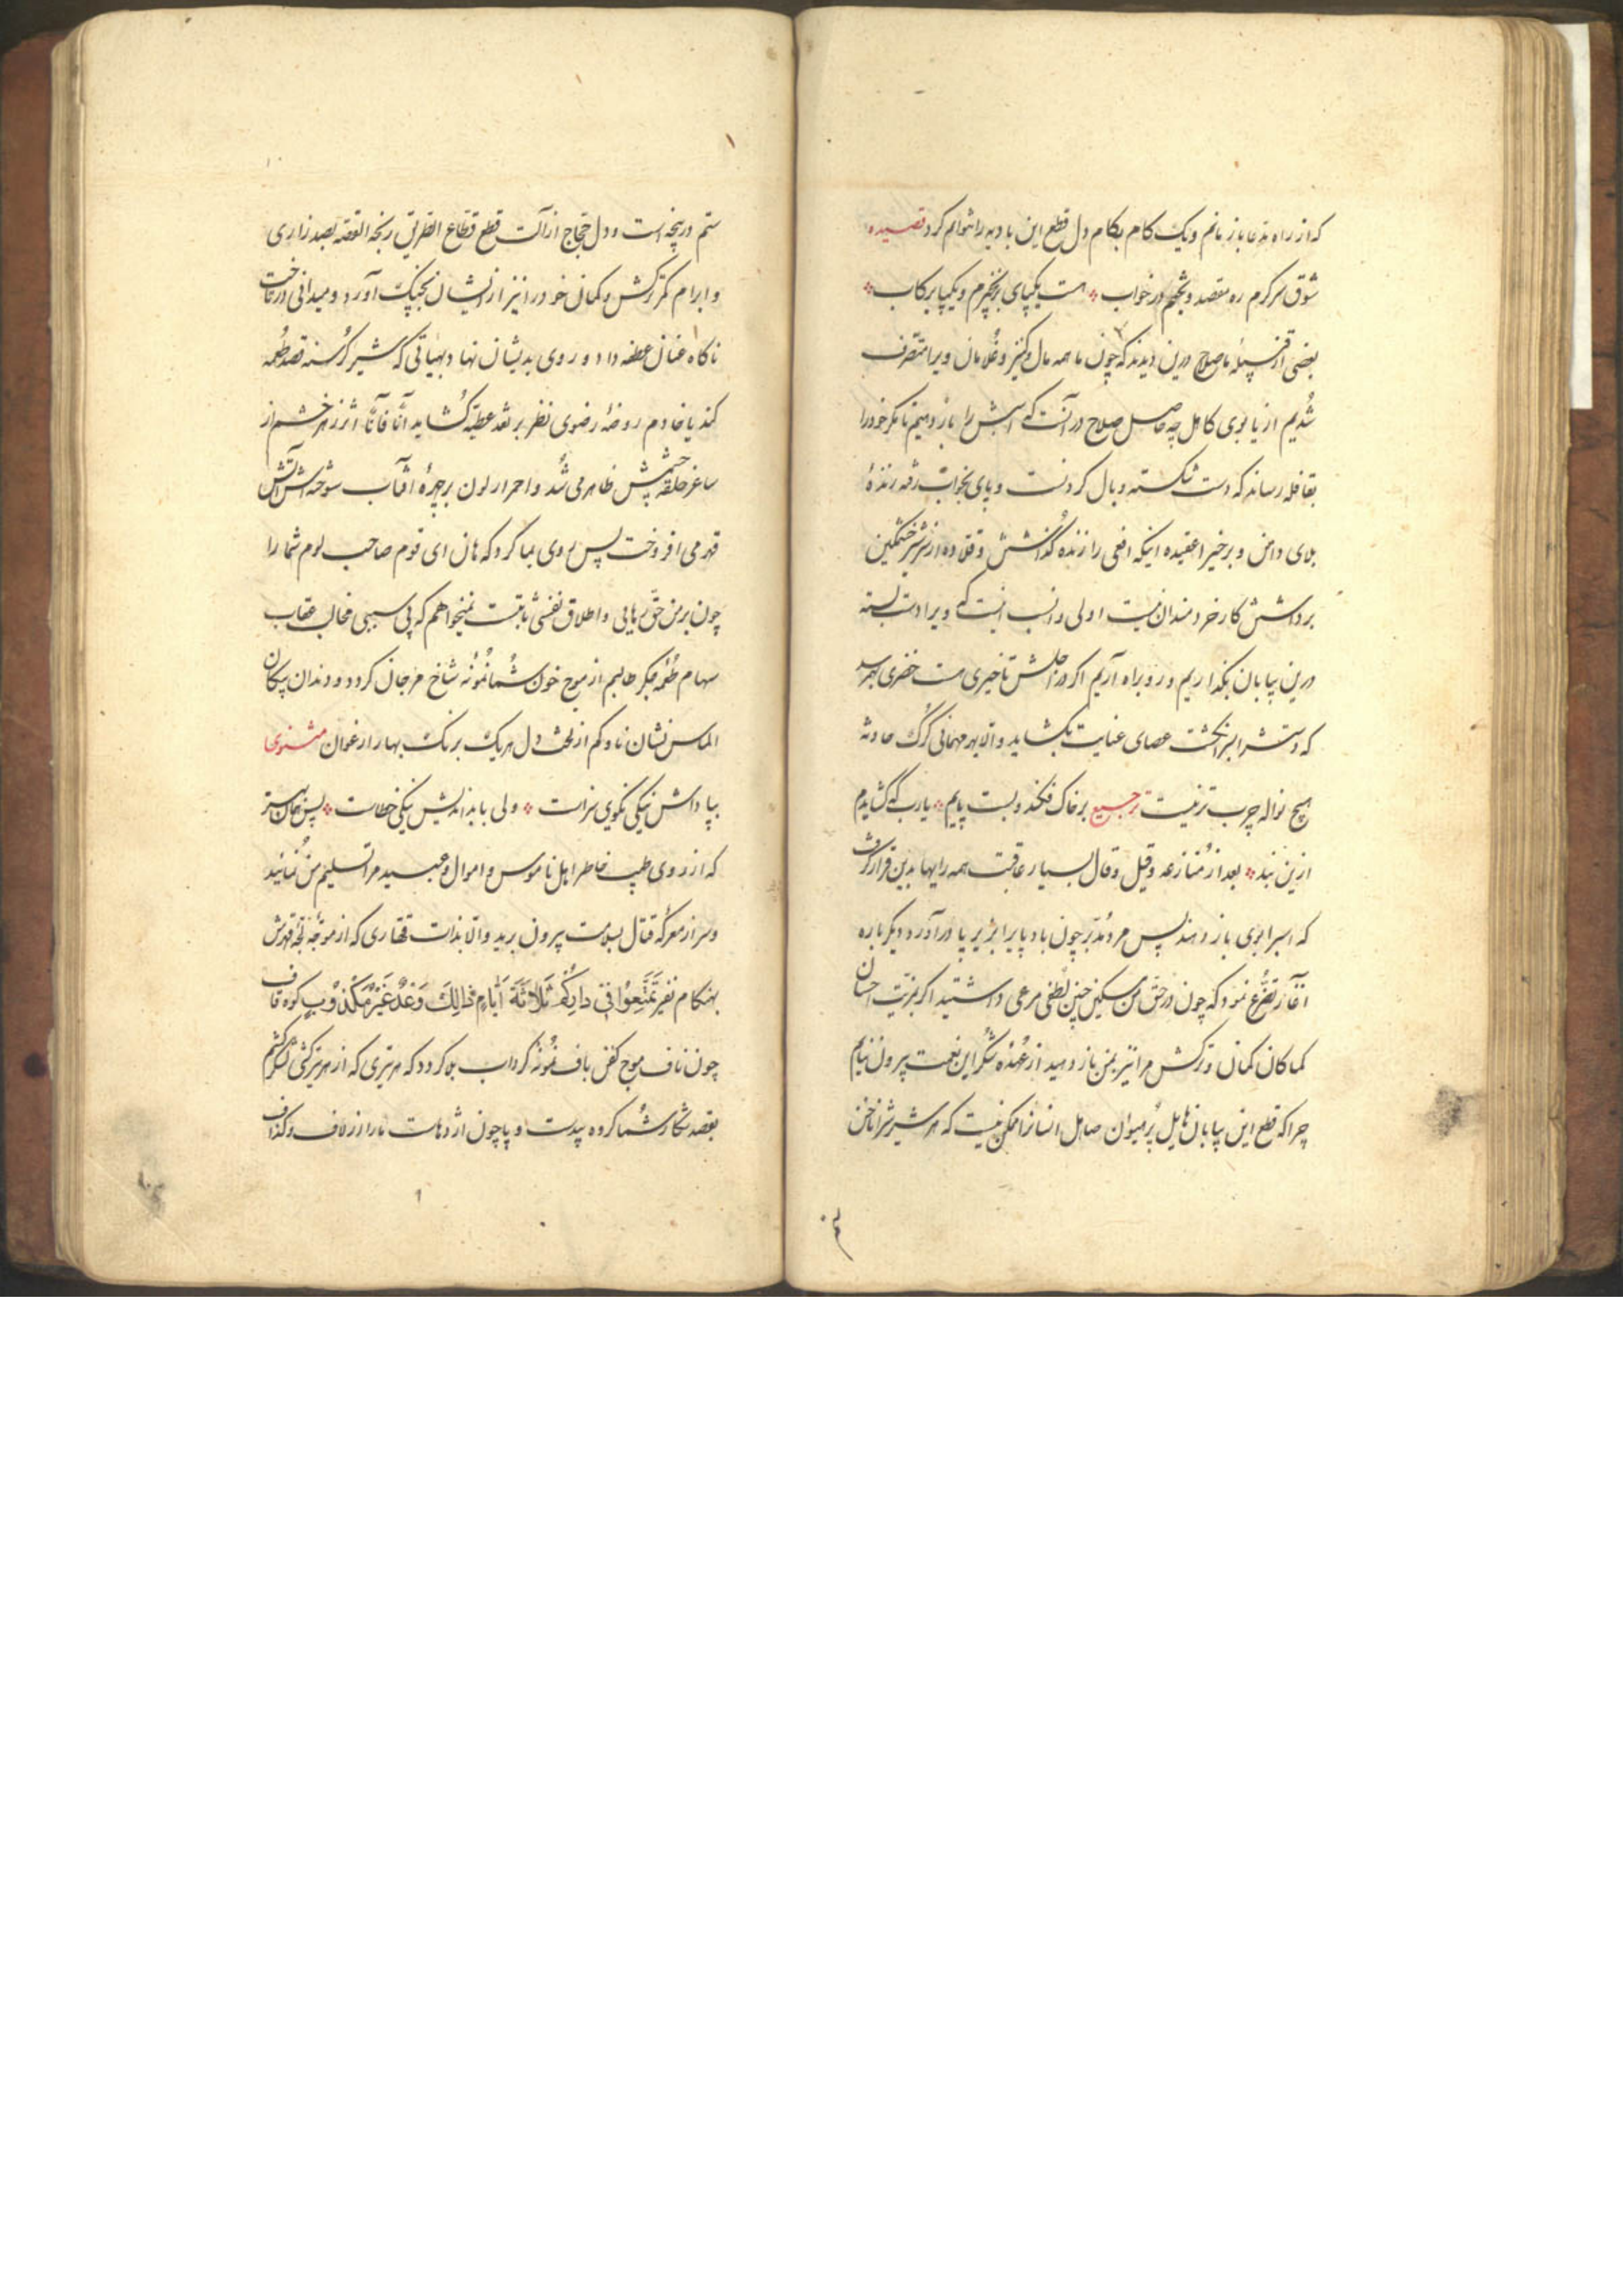 که از راه مدعا باز مانم و یک کام بکام دل قطع این بادیه را نتوانم کرد قصیده
شوق سرکرم ره مقصد و بختم در خواب هست یکپای بزنجیرم و یکپا برکاب
بعضی از قبیله ما صلاح درین دیدند که چون ما همه مال و کنیز و غلامان ویرا متصرف
شدیم از یابوی کاهل چه حاصل صلاح در آنست که اسبش را باز دهیم تا مکر خود را
بقافله رساند که دست شکسته وبال کردنست و پای بخواب رفته زنده
بلای دامن و برخیرا عقیده اینکه افعی را زنده گذاشتن و قلاده از شیر خشمکین
برداشتن کار خردمندان نیست اولی و انسب اینست که ویرا دست بسته
درین بیابان بگذاریم و رو براه آریم اکر در اجلش تاخیری هست خضری بهم رسد
که دستش را بسر انکشت عصای عنایت بکشاید و الا بهر مهمانی کرک حادثه
هیچ نواله چرب تر نیست ترجیع بر خاک فکند و بست پایم یا رب که کشایدم
ازین بند بعد از منازعه و قیل و قال بسیار عاقبت همه رایها بدین قرار گرفت
که اسب مرا بوی باز دهند پس مرد مدبر چون باد پا را بزیر پا در آورد دیکر باره
آغاز تضرع نمود که چون در حق من مسکین چنین لطفی مرعی داشتید اکر بمزیت احسان
کماکان کمان و ترکش مرا نیز بمن باز دهید از عهده شکر این نعمت بیرون نیایم
چرا که قطع این بیابان هایل بر حیوان صاهل انسانرا ممکن نیست که هر شیر شرزه را ناخن
ستم در پنجه است و دل حجاج از آلت قطع قطاع الطریق رنجه القصه بصد زاری
و ابرام کمر ترکش و کمان خود را نیز از ایشان بچنک آورد و میدانی در تاخت
ناکاه عنان عطف داد و روی بدیشان نهاد بهیاتی که شیر گرسنه قصد طعمه
کند یا خادم روضه رضوی نظر بر نقد عطیه گشاید آنا فآنا اثر زهر خشم از
ساغر حلقه چشمش ظاهر می شد و احمرار لون بر چهره آفتاب سوخته اش آتش
قهر می افروخت پس روی بما کرد که هان ای قوم صاحب لوم شما را
چون بر من حق رهایی و اطلاق نفسی ثابتست نمیخواهم که بی سببی مخالب عقاب
سهام طعمه جکر طالبم از موج خون شما نمونه شاخ مرجان کردد و دندان پیکان
الماس نشان ناوکم از لخت دل هر یک برنک بهار ارغوان مثنوی
بپاداش نیکی نکویی سزاست ولی با بداندیش نیکی خطاست پس همان بهتر
که از روی طیب خاطر اهل ناموس و اموال و عبید مرا تسلیم من نمائید
و سر از معرکه قتال بسلامت بیرون برید و الا بذات قهاری که از موجه لجه قهرش
بهنکام نفیر تَمَتَّعُوا فِی دَارِکُمْ ثَلَاثَةَ اَیَّامٍ ذٰلِکَ وَعْدٌ غَیْرُ مَکْذُوبٍ کوه قاف
چون ناف موج کفن باف نمونه کرداب بوکردد که هر تیری که از هر ترکشی برکشم
بقصد شکار شما کروه بیدست و پا چون اژدهاست ما را از لاف و کذاف